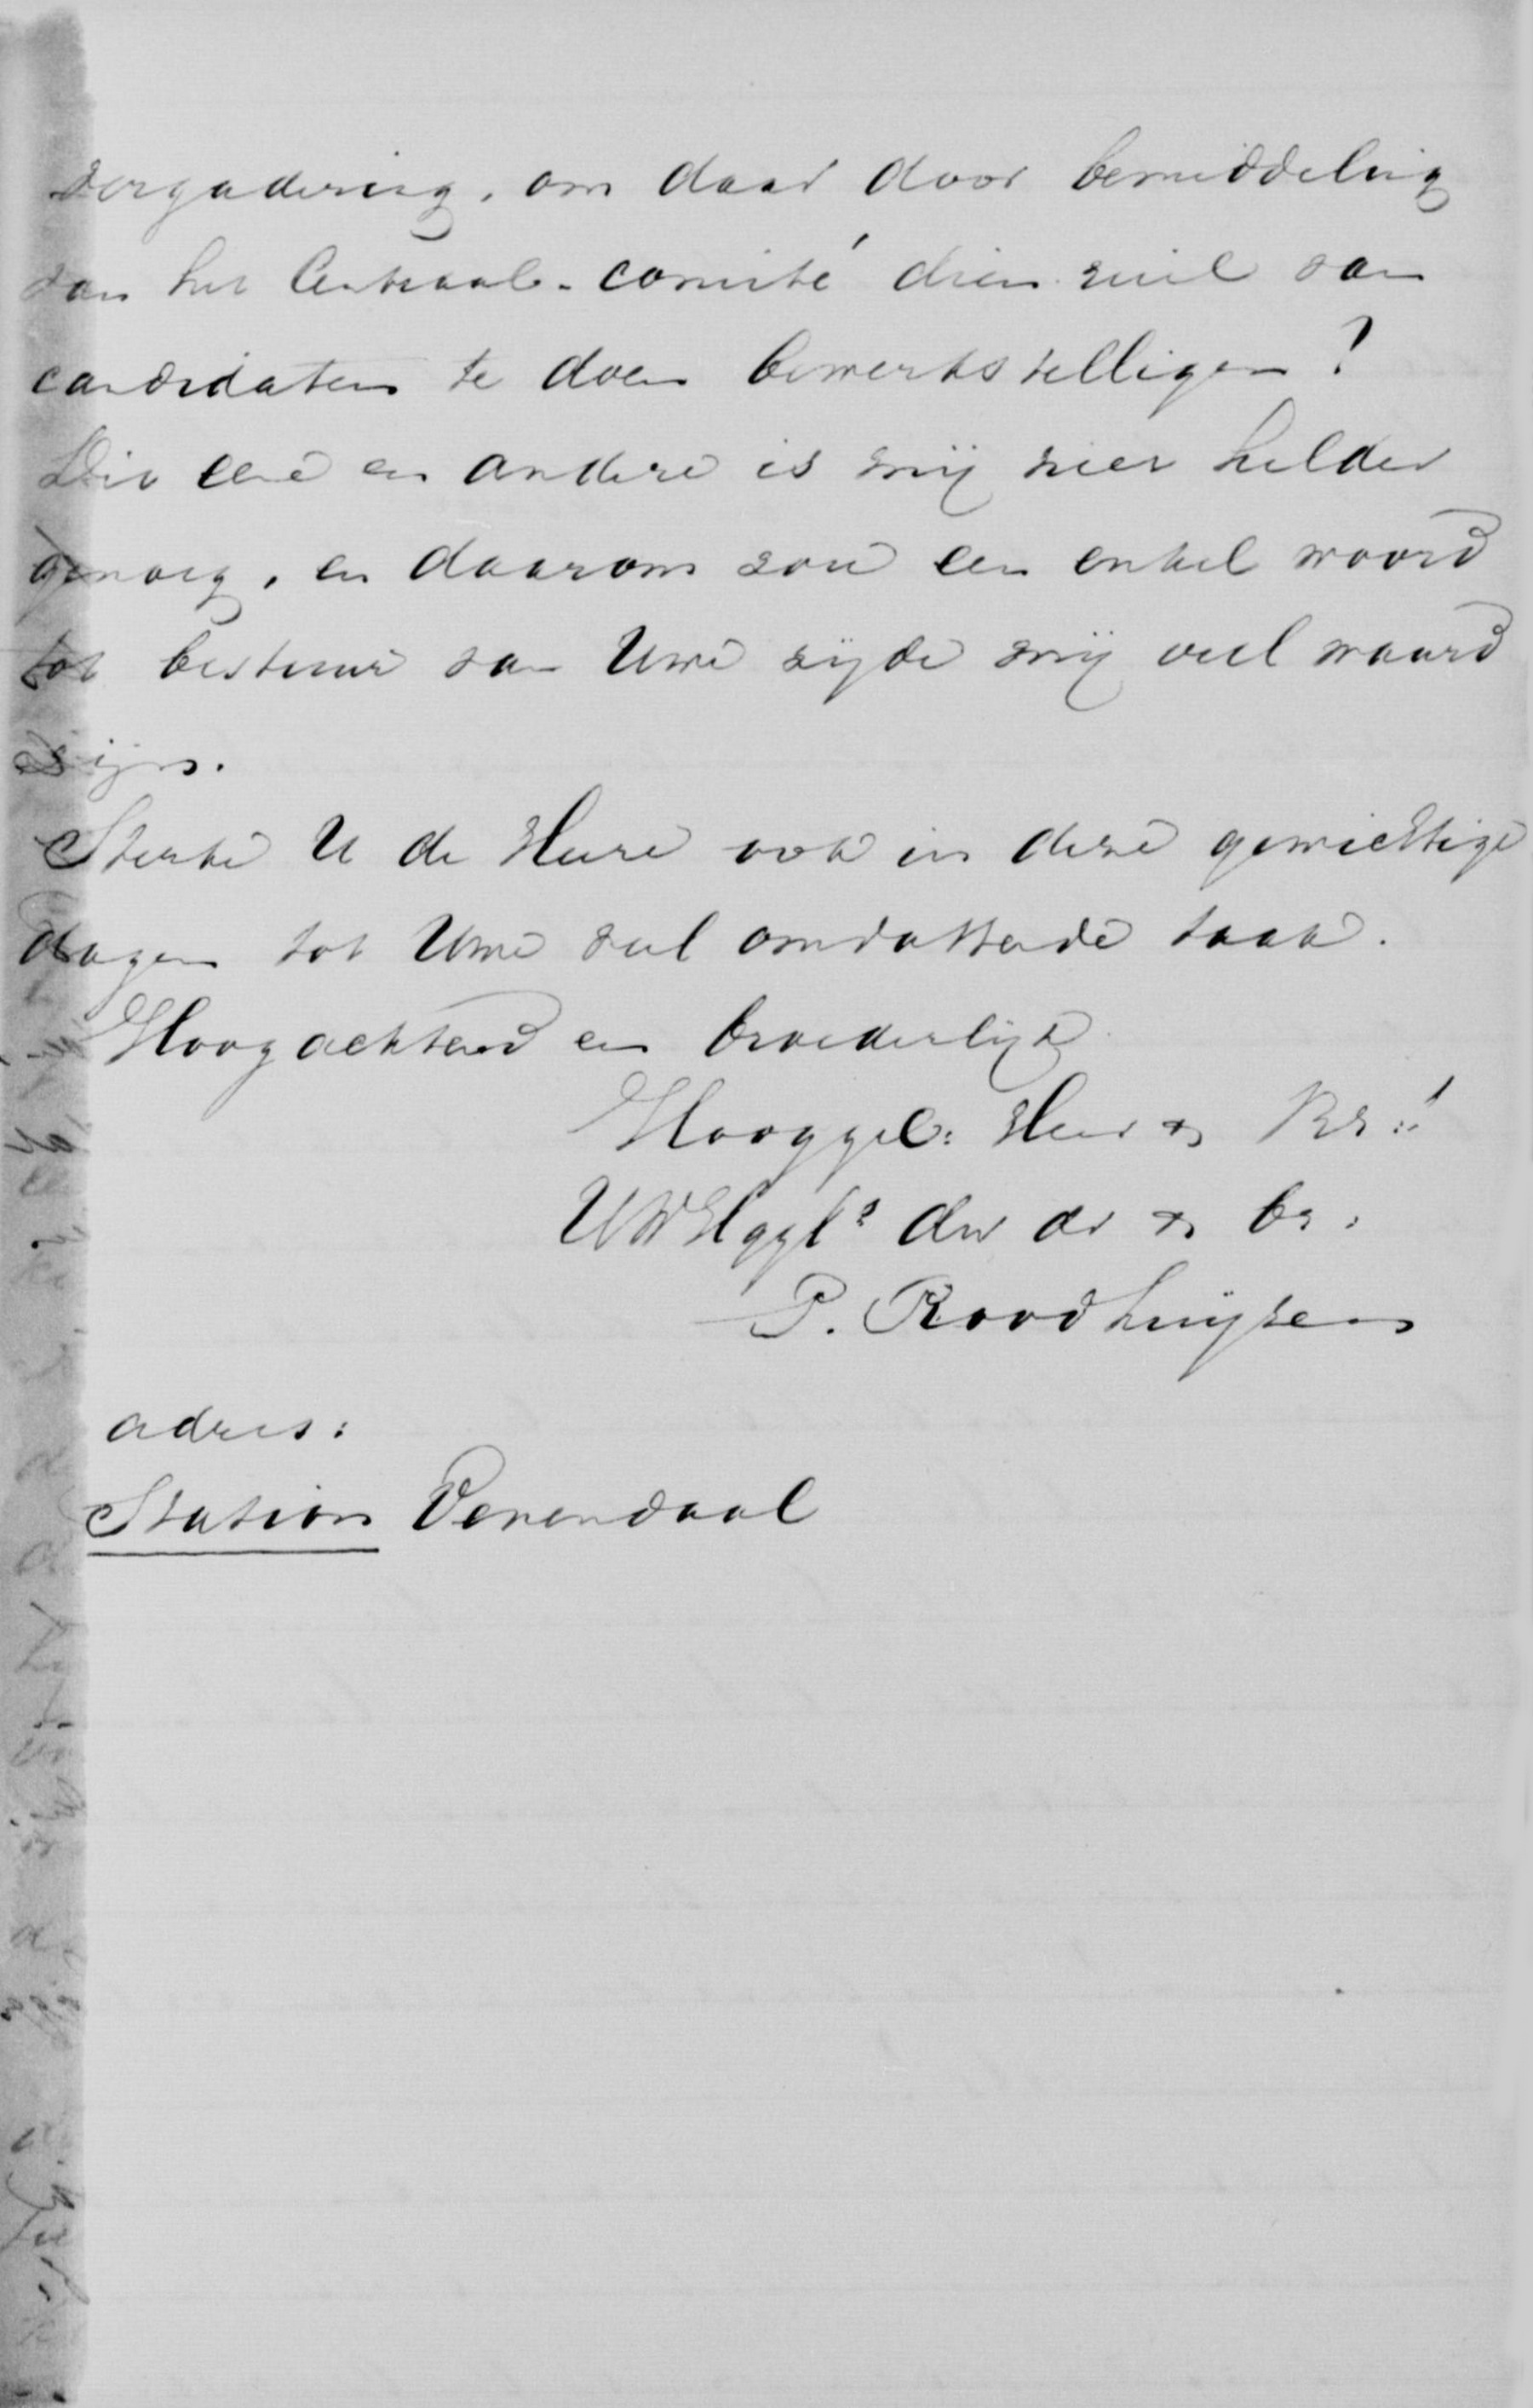 vergadering, om daar door bemiddeling
van het Centraal-comité dien ruil van
candidaten te doen bewerkstelligen?
Dit eene en andere is mij niet helder
genoeg, en daarom zou een enkel woord
tot bestuur van Uwe zijde mij veel waard
zijn.
Sterke U de Heere ook in deze gewichtige
dagen tot Uwe veel omvattende taak.
Hoogachtend en broederlijk
Hooggel: Heer & Br:!
UWHggl? dw dr & br:
P. Roodhuijzen
adres:
Station Venendaal